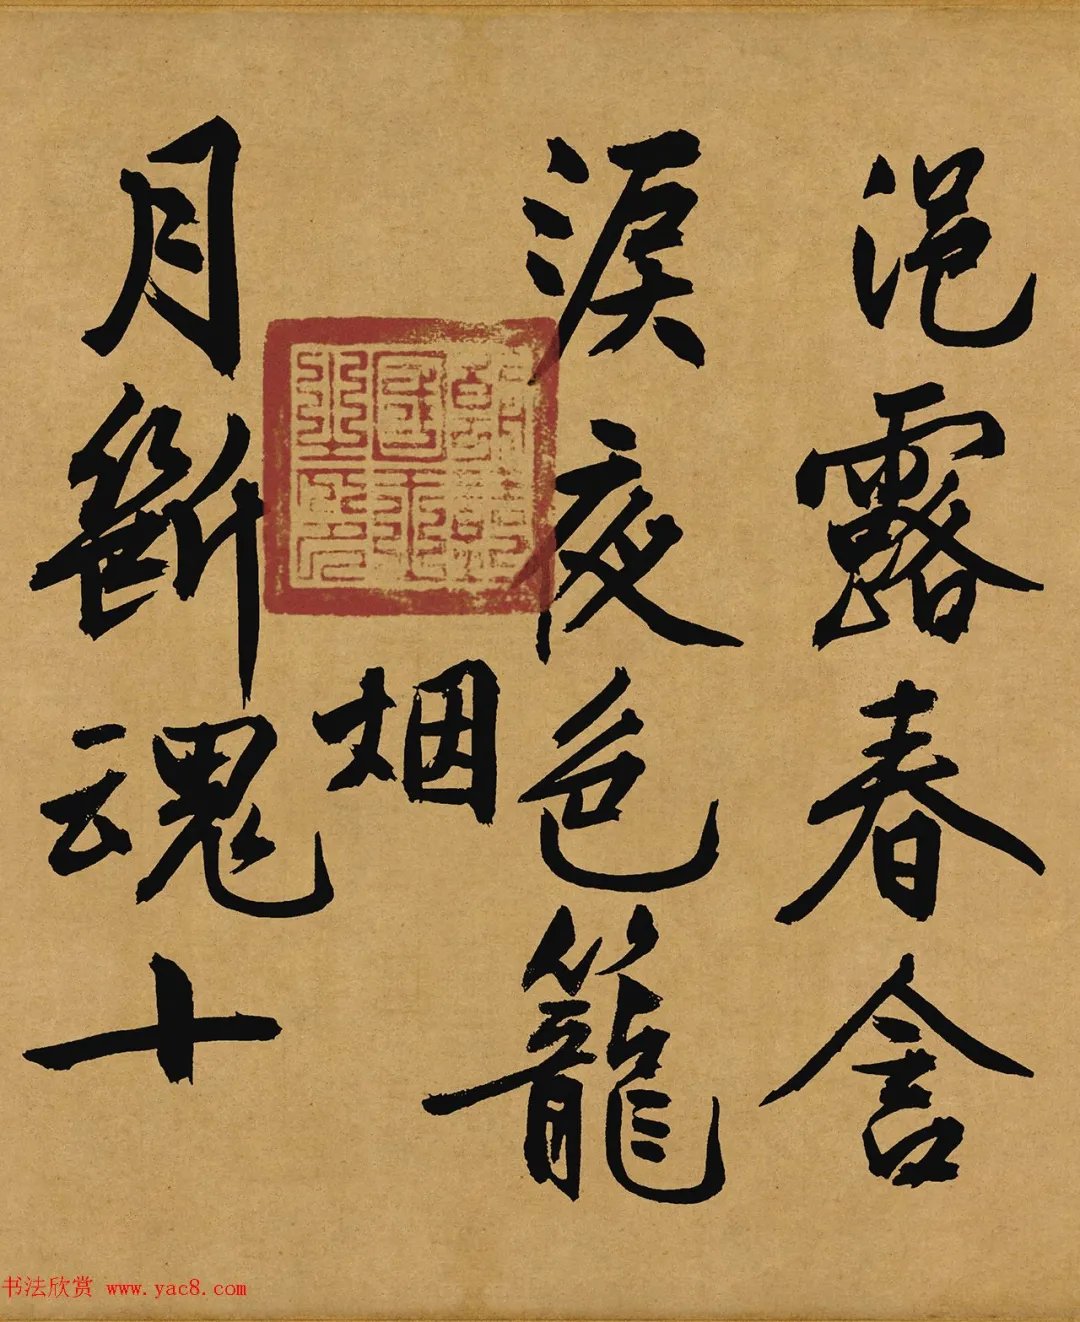 浥露春含
淚夜色籠
烟
月斷魂十
书法欣赏 www.yac8.com